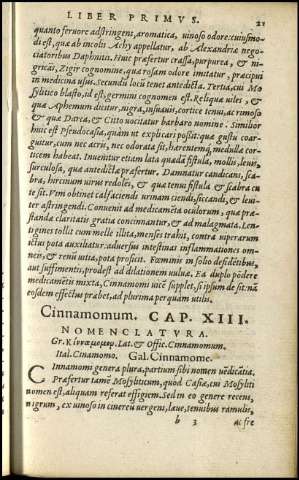 LIBER PRIMVS. 21
quanto feruore adstringens, aromatica, uinoso odore: cuiusmo-
di est, quæ ab incolis Achy appellatur, ab Alexandriæ nego-
ciatoribus Daphnitis. Huic præfertur crassa, purpurea, & ni-
gricās, Zigir cognomine, quæ rosam odore imitatur, præcipui
in medicina usus. Secundū locū tenet antedicta. Tertia, cui Mo
sylitico blasto, id est, germini cognomen est. Reliquæ uiles, &
quæ Aphemum dicitur, nigra, insuauis, cortice tenui, ac rimoso
& quæ Darca, & Citto uocitatur barbaro nomine. Similior
huic est Pseudocasia, quàm ut explicari possit: quæ gustu coar-
guitur, cum nec acris, nec odorata sit, harentemq́; medulæ cor-
ticem habeat. Inuenitur etiam lata quædā fistula, mollis, leuis,
surculosa, quæ antedictæ præfertur. Damnatur candicans, sca-
bra, hircinum uirus redolēs, & quæ tenui fistula & scabra cu
te sit. Vim obtinet calfaciendi urinam ciendi, siccandi, & leui-
ter astringendi. Conuenit ad medicamēta oculorum, quæ præ-
standæ claritatis gratia concinnantur, & ad malagmata. Len-
tigines tollit cum melle illita, menses trahit, contra uiperarum
ictus pota auxiliatur: aduersus intestinas inflammationes om-
neis, & renū uitia, pota proficit. Fœminis in solio desidētibus,
aut suffimentis, prodest ad dilationem uuluæ. Ea duplo pōdere
medicamētis mixta, Cinnamomi uicē supplet, si ipsum de sit: nā
eosdem effectus præbet, ad plurima perquam utilis.
Cinnamomum. CAP. XIII.
NOMENCLATVRA.
Gr. Κίνναμωμον. Lat. & Offic. Cinnamomum.
Ital. Cinamomo. Gal. Cinnamome.
CInnamomi genera plura, partium sibi nomen uēdicātia.
Præfertur tamē Mosyliticum, quod Casiæ, cui Mosyliti
nomen est, aliquam referat effigiem. Sed in eo genere recens,
nigrum, ex uinoso in cinereū uergens, læue, tenuibus ramulis,
b 3 ac fre